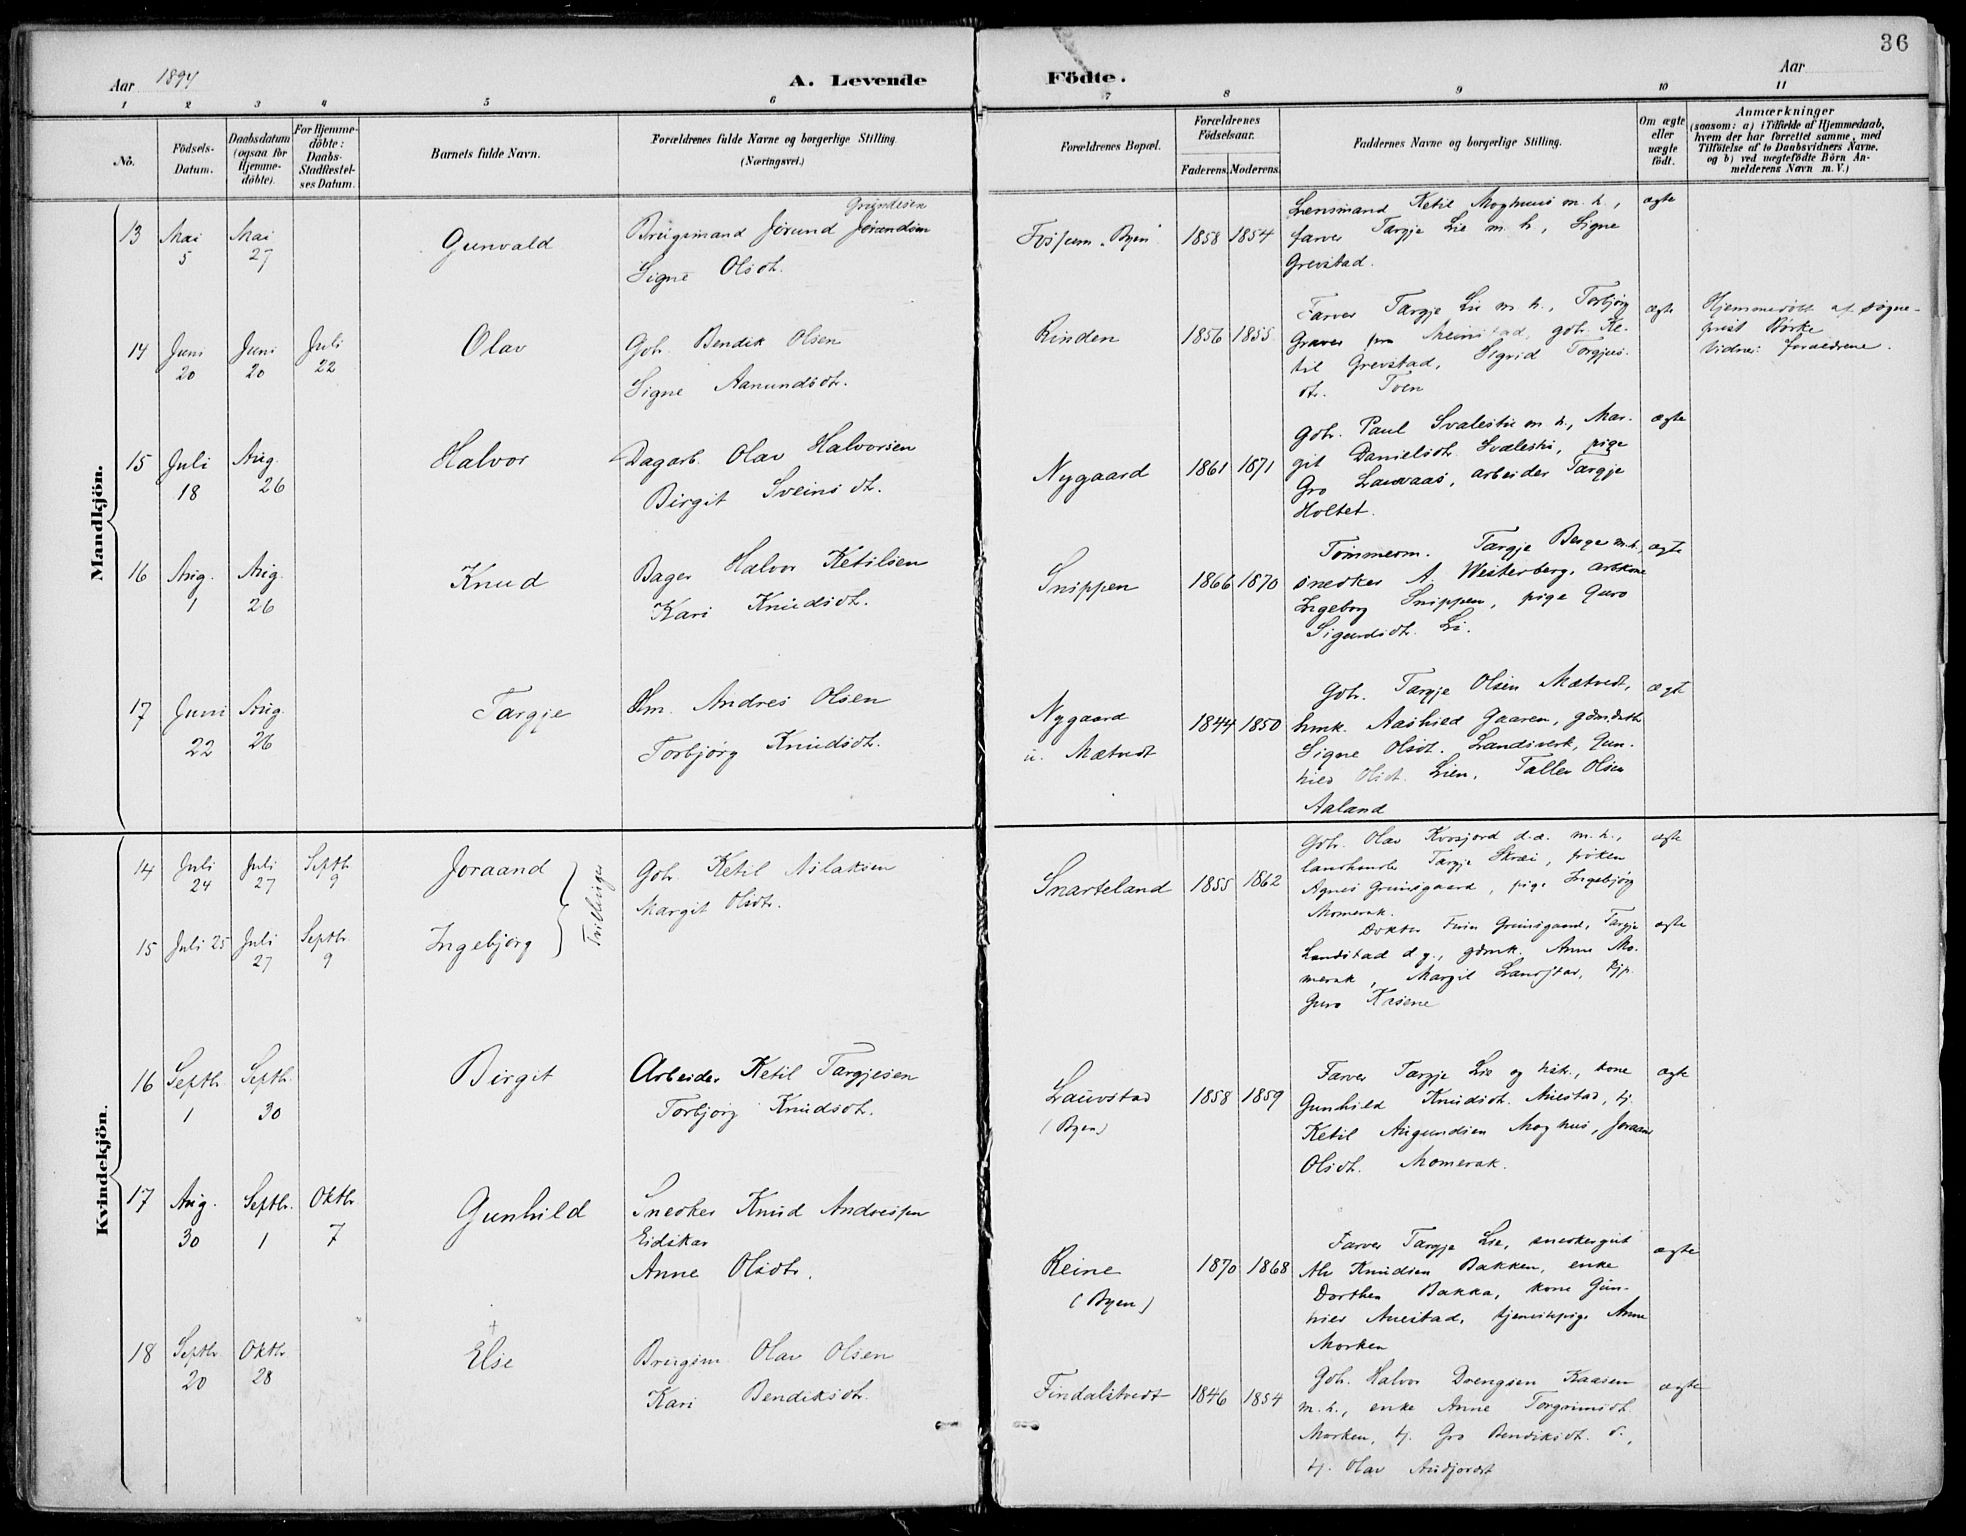 36
Aar 1894
A. Levende Födte.
Aar
1 2 3 4 5 6 7 8 9 10 11
No.
Födsels-Datum.
Daabsdatum (ogsaa for Hjemme-döbte).
For Hjemme-döbte: Daabs-Stadfæstel-ses Datum.
Barnets fulde Navn.
Forældrenes fulde Navne og borgerlige Stilling. (Næringsvei.)
Forældrenes Bopæl.
Forældrenes Födselsaar.
Faderens. Moderens.
Faddernes Navne og borgerlige Stilling.
Om ægte eller uægte födt.
Anmærkninger
(saasom: a) i Tilfælde af Hjemmedaab, hvem der har forrettet samme, med Tilföielse af to Daabsvidners Navne, og b) ved uægtefödte Börn An-melderens Navn m. V.)
Mandkjön.
13 Mai 5 Mai 27 Gunvald
Grundesen
Brugsmand Jørund Jørandsen
Signe Olsdt.
Fossum "Byen" 1858 1854
Lensmand Ketil Moghuus m. h.,
farver Targje Lie m. h., Signe
Grevstad.
ægte
14 Juni 20 Juni 20 Juli 22 Olav
Gbr. Bendik Olsen
Signe Aanundsdt.
Rinden 1856 1855
Farver Targje Lie m. h., Torbjørg
Graver fra Meinstad, gbr. Ke-
til Grevstad, Sigrid Torgjus-
dt. Tven
ægte
Hjemmedøbt af sogne-
prest Børke
Vidner: forældrene.
15 Juli 18 Aug. 26 Halvor
Dagarb. Olav Halvorsen
Birgit Sveinsdt.
Nygaard 1861 1871
Gbr. Paul Svalestu m. h., Mar-
git Danielsdt. Svalestu, pige
Gro Lauvaas, arbeider Targje
Holtet.
ægte
16 Aug. 1 Aug. 26 Knud
Bager Halvor Ketilsen
Kari Knudsdt.
Snippen 1866 1870
Tømmerm. Targje Berge m. h.,
snedker A. Westerberg, arbkone
Ingeborg Snippen, pige Guro
Sigurdsdt. Li.
ægte
17 Juni 22 Aug. 26 Targje
Hm. Andres Olsen
Torbjørg Knudsdt.
Nygaard
u. Mætvedt
1844 1850
Gbr. Targje Olsen Mætvedt,
hmk. Aashild Gaaren, gdmdatt.
Signe Olsdt. Landsverk, Gun-
hild Olsdt. Lien, Tallev Olsen
Aaland
ægte
Kvindekjön.
14 Juli 24 Juli 27 Septbr. 9 Joraand
Tvillinger
Gbr. Ketil Aslaksen
Margit Olsdt.
Snarteland 1855 1862
Gbr. Olav Kvosjord d. æ. m. h.,
landhandl. Targje Skræi, frøken
Agnes Grimsgaard, pige Ingebjørg
Momrak.
ægte
15 Juli 25 Juli 27 Septbr. 9 Ingebjørg
Doktor Finn Grimsgaard, Targje
Landstad d. y., gdmk. Anne Mo-
merak, Margit Landstad, tjp.
Guro Kasene
ægte
16 Septbr. 1 Septbr. 30 Birgit
Arbeider Ketil Targjesen
Torbjørg Knudsdt.
Lauvstad
(Byen)
1858 1859
Farver Targje Lie og hstr., kone
Gunhild Knudsdt. Auestad, tj.
Ketil Augundsen Moghus, Joraand
Olsdt. Momerak.
ægte
17 Aug. 30 Septbr. 1 Oktbr 7 Gunhild
Snedker Knud Andressen
Eidskar
Anne Olsdtr.
Reine
(Byen)
1870 1868
Farver Targje Lie, snedkergut
Alv Knudsen Bakken, enke
Dorthea Bakka, kone Gun-
hild Auestad, tjenestepige Anne
Morken
ægte
18 Septbr. 20 Oktbr 28 Else
Brugsm. Olav Olsen
Kari Bendiksdt.
Findalstvedt 1846 1854
Gbr. Halvor Drengsen Kaasen
m. h., enke Anne Torgrimsdt.
Morken, tj. Gro Bendiksdt. d.,
tj. Olav Audjordet
ægte